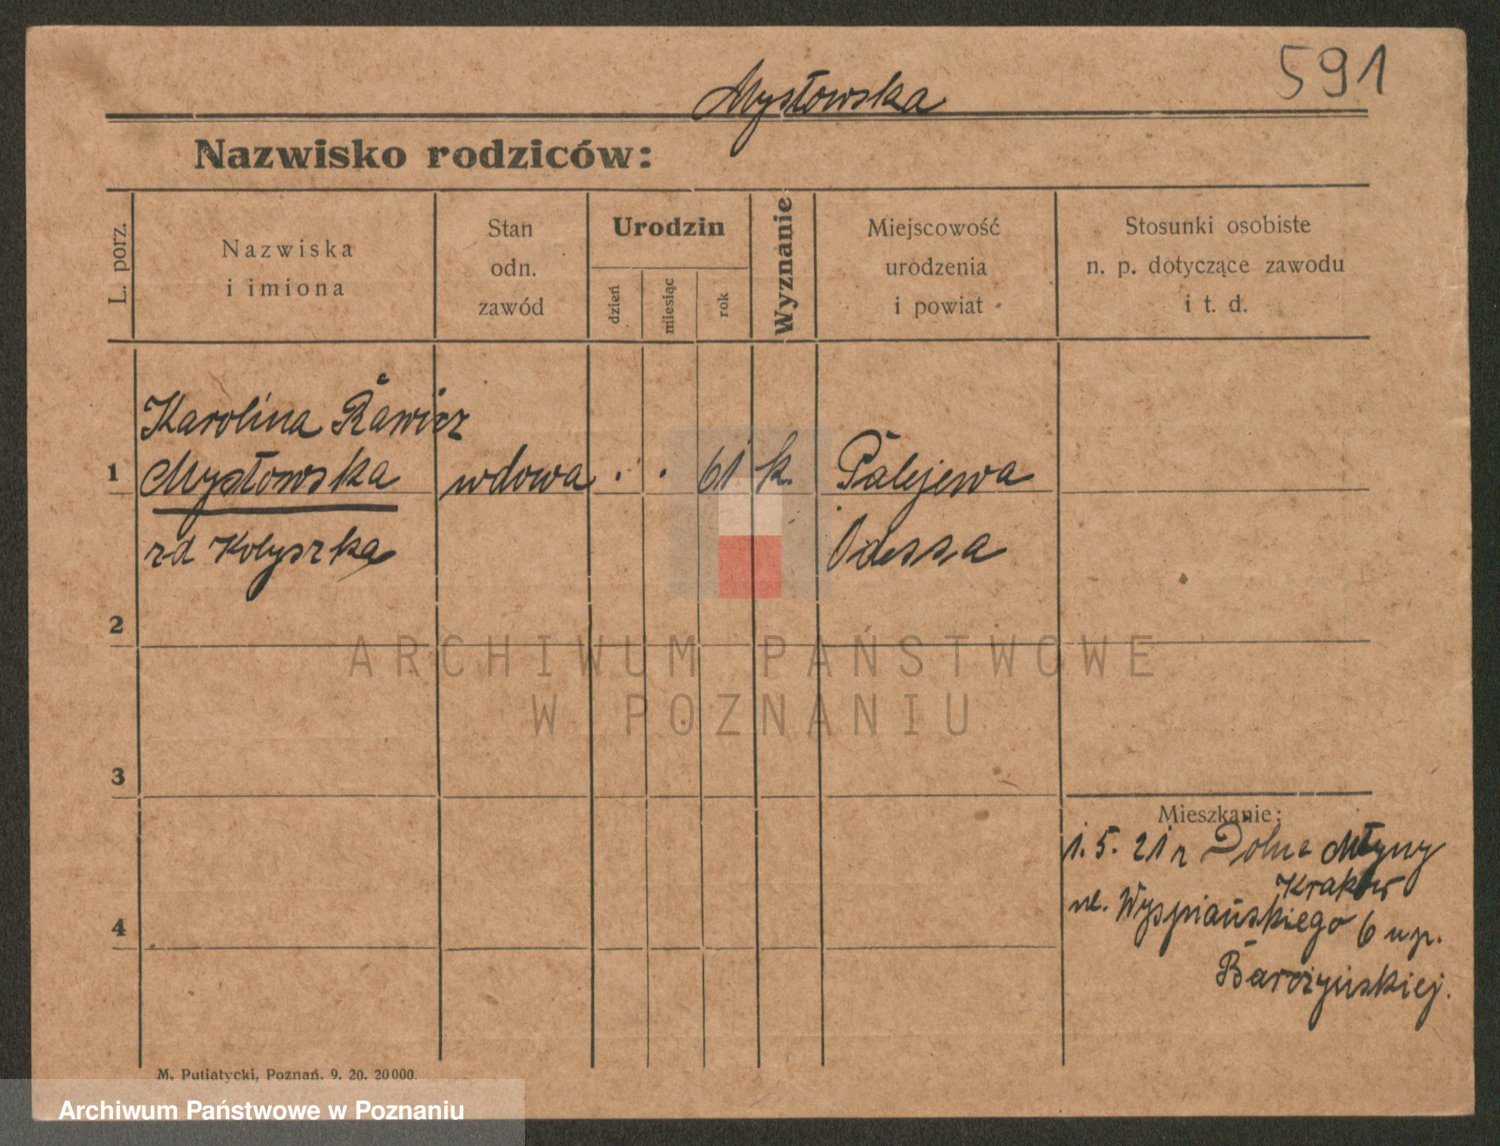 591
Mysłowska
Nazwisko rodziców:
L. porz.
Nazwiska
i imiona
Stan
odn.
zawód
Urodzin
dzień
miesiąc
rok
Wyznanie
Miejscowość
urodzenia
i powiat
Stosunki osobiste
n. p. dotyczące zawodu
i t. d.
Karolina Rawicz
1 Mysłowska wdowa . . 61 k. Palejewa
rd Kołyszka Odessa
2
3
Mieszkanie:
1. 5. 21 r Dolne Młyny
Kraków
4 ul. Wyspiańskiego 6 u p.
M. Putiatycki, Poznań. 9. 20. 20000.
ARCHIWUM PAŃSTWOWE
W POZNANIU
Archiwum Państwowe w Poznaniu